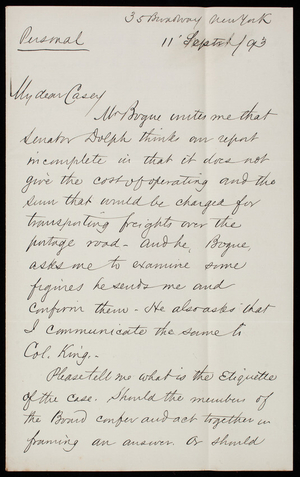 35 Broadway New York
Personal
11' Septbr/93
My dear Casey
Mr Bogue writes me that
Senator Dolph thinks our report
incomplete in that it does not
give the cost of operating and the
sum that would be charged for
transporting freights over the
portage road - And he, Bogue,
asks me to examine some
figures he sends me and
confirm them - He also asks that
I communicate the same to
Col. King.-
Please tell me what is the Etiquette
of the case. Should the members of
the Board confer and act together in
framing an answer. Or should